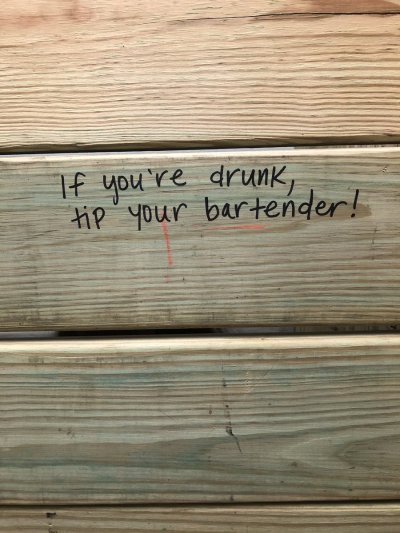 If you're drunk,
tip your bartender!